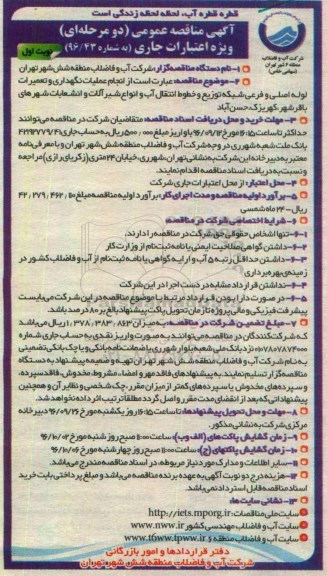 قطره قطره آب، لحظه لحظه زندگی است
آگهی مناقصه عمومی (دو مرحله‌ای)
ویژه اعتبارات جاری (به شماره ۹۶/۴۳)
نوبت اول
شرکت آب و فاضلاب
منطقه ۶ شهر تهران
(سهامی خاص)
۱- نام دستگاه مناقصه‌گزار: شرکت آب و فاضلاب منطقه شش شهر تهران
۲- موضوع مناقصه: عبارت است از انجام عملیات نگهداری و تعمیرات
لوله اصلی و فرعی شبکه توزیع و خطوط انتقال آب و انواع شیرآلات و انشعاب‌های شهرهای
باقرشهر، کهریزک، حسن‌آباد
۳- مهلت خرید و محل دریافت اسناد مناقصه: متقاضیان شرکت در مناقصه می‌توانند
حداکثر تا ساعت ۱۶:۱۵ مورخ ۹۶/۰۹/۱۲ با واریز مبلغ ۵۰۰/۰۰۰ ریال به حساب جاری
بانک ملت شعبه شهرری در وجه شرکت آب و فاضلاب منطقه شش شهر تهران و با معرفی‌نامه
معتبر به دبیرخانه این شرکت به نشانی تهران، شهرری، خیابان ۲۴ متری (زکریای رازی) مراجعه
و نسبت به دریافت اسناد مناقصه اقدام نمایند.
۴- محل اعتبار: از محل اعتبارات جاری شرکت
۵- برآورد اولیه مناقصه و مدت اجرای کار: برآورد اولیه مناقصه مبلغ ۴۲,۲۷۹,۴۶۲,۱۱۰
ریال - ۲۴ ماه شمسی
۶- شرایط اختصاصی شرکت در مناقصه:
۶-۱- تنها اشخاص حقوقی حق شرکت در مناقصه را دارند.
۶-۲- داشتن گواهی صلاحیت ایمنی یا نامه ثبت‌نام از وزارت کار
۶-۳- داشتن حداقل رتبه ۵ آب و ارایه گواهی یا نامه ثبت‌نام از آب و فاضلاب کشور در
زمینه‌ی بهره‌برداری
۶-۴- نداشتن قرارداد مشابه در دست اجرا در این شرکت
۶-۵- در صورت دارا بودن قرارداد مرتبط با موضوع مناقصه در این شرکت می‌بایست
پیشرفت فیزیکی و مالی پروژه تا زمان تحویل پاکت پیشنهاد بالغ بر ۸۰ درصد باشد.
۷- مبلغ تضمین شرکت در مناقصه: به میزان ۱,۳۷۸,۳۸۳,۸۶۳ ریال می‌باشد
که شرکت‌کنندگان در مناقصه می‌توانند به صورت واریز نقدی به حساب جاری شماره
نزد بانک ملی شعبه بلوار شهرری یا ضمانت‌نامه بانکی و یا چک بانکی تضمینی
به نام شرکت آب و فاضلاب منطقه شش شهر تهران تهیه و ضمیمه پیشنهاد به دستگاه
مناقصه‌گزار تسلیم نمایند. به پیشنهادهای فاقد مهر و امضاء، مشروط، مخدوش، فاقد سپرده،
و سپرده‌های مخدوش یا سپرده‌های کمتر از میزان مقرر، چک شخصی و نظایر آن و همچنین
پیشنهاداتی که بعد از انقضای مدت مقرر واصل گردد مطلقا ترتیب اثر داده نخواهد شد.
۸- مهلت و محل تحویل پیشنهادها: تا ساعت ۱۶:۱۵ روز یکشنبه مورخ ۹۶/۰۹/۲۶ دبیرخانه
مرکزی شرکت به نشانی مذکور.
۹- زمان گشایش پاکت‌های (الف و ب): ساعت ۱۱:۰۰ صبح روز شنبه مورخ ۹۶/۱۰/۰۲
۱۰- زمان گشایش پاکت‌های (ج): ساعت ۱۱:۰۰ صبح روز چهارشنبه مورخ ۹۶/۱۰/۰۶
۱۱- سایر اطلاعات و مدارک مورد نیاز مربوطه، در اسناد مناقصه مندرج می‌باشد.
۱۲- هزینه درج دو نوبت آگهی به عهده برنده مناقصه می‌باشد و مبلغ پرداختی بابت خرید
اسناد مناقصه قابل استرداد نمی‌باشد.
۱۳- نشانی سایت‌ها:
سایت ملی مناقصات: http://iets.mporg.ir
سایت آب و فاضلاب مهندسی کشور www.nww.ir
سایت آب و فاضلاب منطقه ۶ www.tpww.ir
دفتر قراردادها و امور بازرگانی
شرکت آب و فاضلاب منطقه شش شهر تهران